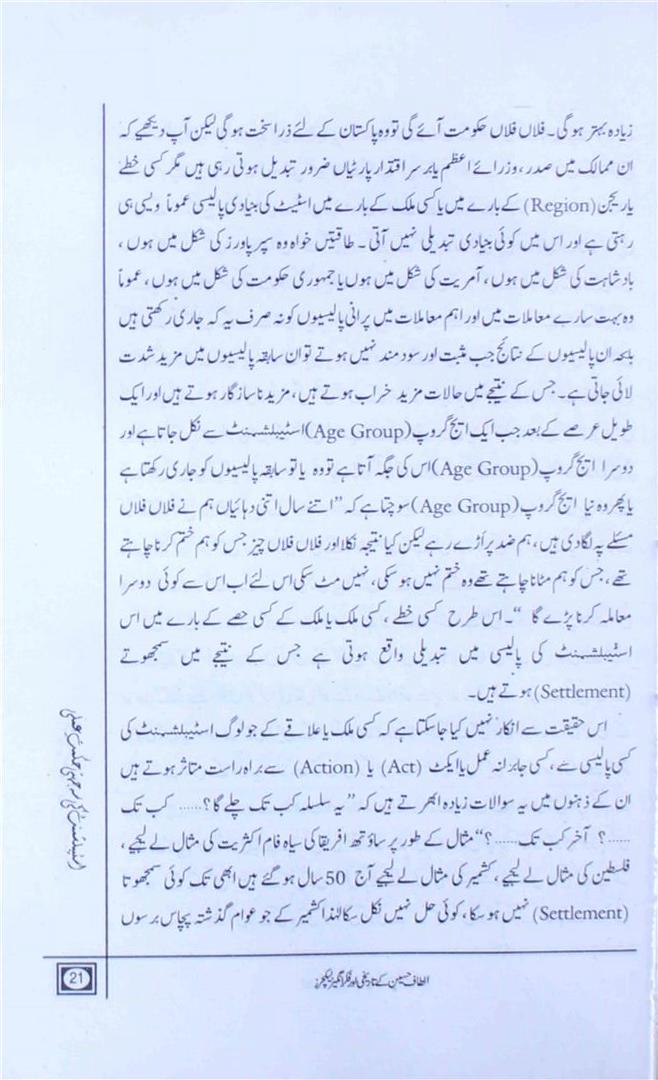 زیادہ بہتر ہو گی۔ فلاں فلاں حکومت آئے گی تو وہ پاکستان کے لئے ذرا سخت ہو گی لیکن آپ دیکھیے کہ
ان ممالک میں صدر، وزرائے اعظم یا برسراقتدار پارٹیاں ضرور تبدیل ہوتی رہی ہیں مگر کسی خطے
یا ریجن (Region) کے بارے میں یا کسی ملک کے بارے میں اسٹیٹ کی بنیادی پالیسی عموماً ویسی ہی
رہتی ہے اور اس میں کوئی بنیادی تبدیلی نہیں آتی۔ طاقتیں خواہ وہ سپر پاورز کی شکل میں ہوں ،
بادشاہت کی شکل میں ہوں ، آمریت کی شکل میں ہوں یا جمہوری حکومت کی شکل میں ہوں ، عموماً
وہ بہت سارے معاملات میں اور اہم معاملات میں پرانی پالیسیوں کو نہ صرف یہ کہ جاری رکھتی ہیں
بلکہ ان پالیسیوں کے نتائج جب مثبت اور سودمند نہیں ہوتے تو ان سابقہ پالیسیوں میں مزید شدت
لائی جاتی ہے۔ جس کے نتیجے میں حالات مزید خراب ہوتے ہیں ، مزید ناسازگار ہوتے ہیں اور ایک
طویل عرصے کے بعد جب ایک ایج گروپ (Age Group) اسٹیبلشمنٹ سے نکل جاتا ہے اور
دوسرا ایج گروپ (Age Group) اس کی جگہ آتا ہے تو وہ یا تو سابقہ پالیسیوں کو جاری رکھتا ہے
یا پھر وہ نیا ایج گروپ (Age Group) سوچتا ہے کہ ’’اتنے سال اتنی دہائیاں ہم نے فلاں فلاں
مسئلے پہ لگا دی ہیں ، ہم ضد پر اڑے رہے لیکن کیا نتیجہ نکلا اور فلاں فلاں چیز جس کو ہم ختم کرنا چاہتے
تھے ، جس کو ہم مٹانا چاہتے تھے وہ ختم نہیں ہو سکی ، نہیں مٹ سکی اس لئے اب اس سے کوئی دوسرا
معاملہ کرنا پڑے گا ‘‘۔ اس طرح کسی خطے ، کسی ملک یا ملک کے کسی حصے کے بارے میں اس
اسٹیبلشمنٹ کی پالیسی میں تبدیلی واقع ہوتی ہے جس کے نتیجے میں سمجھوتے
(Settlement) ہوتے ہیں۔
اس حقیقت سے انکار نہیں کیا جا سکتا ہے کہ کسی ملک یا علاقے کے جو لوگ اسٹیبلشمنٹ کی
کسی پالیسی سے ، کسی جابرانہ عمل یا ایکٹ (Act) یا (Action) سے براہ راست متاثر ہوتے ہیں
ان کے ذہنوں میں یہ سوالات زیادہ ابھرتے ہیں کہ ’’یہ سلسلہ کب تک چلے گا؟...... کب تک
......؟ آخر کب تک......؟‘‘ مثال کے طور پر ساؤتھ افریقا کی سیاہ فام اکثریت کی مثال لے لیجیے ،
فلسطین کی مثال لے لیجیے ، کشمیر کی مثال لے لیجیے آج 50 سال ہو گئے ہیں ابھی تک کوئی سمجھوتا
(Settlement) نہیں ہو سکا ، کوئی حل نہیں نکل سکا لہٰذا کشمیر کے جو عوام گذشتہ پچاس برسوں
الطاف حسین کے تاریخی اور فکر انگیز لیکچرز
21